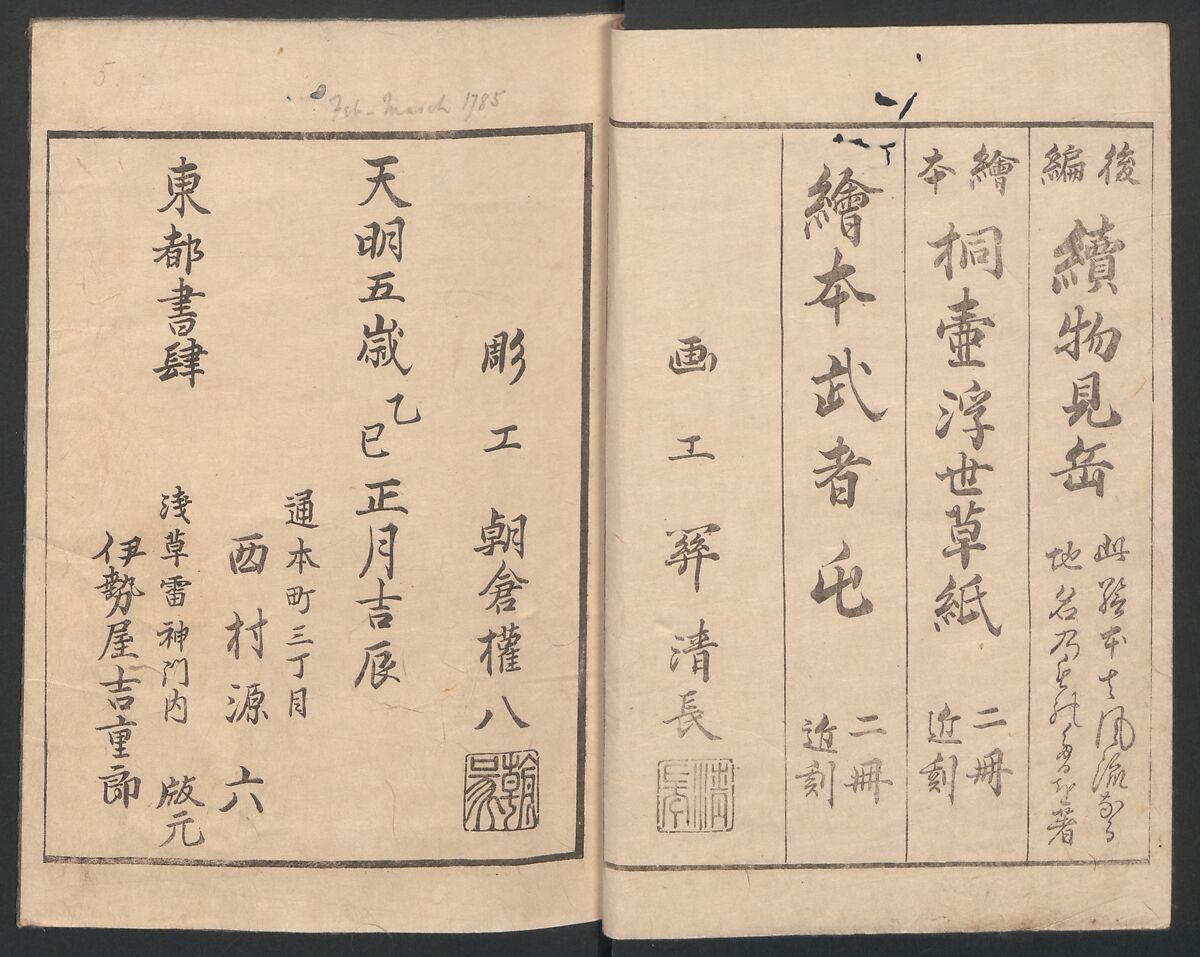 後編 續物見岳
此絵本は風流なる
地名乃
著
繪本 桐壷浮世草紙 二冊 近刻
繪本武者
二冊 近刻
画工 關清長
清長
彫工 朝倉權八
天明五歳乙巳正月吉辰
通本町三丁目
西村源六
東都書肆
淺草雷神門内 版元
伊勢屋吉重郎
Feb-March 1785
5